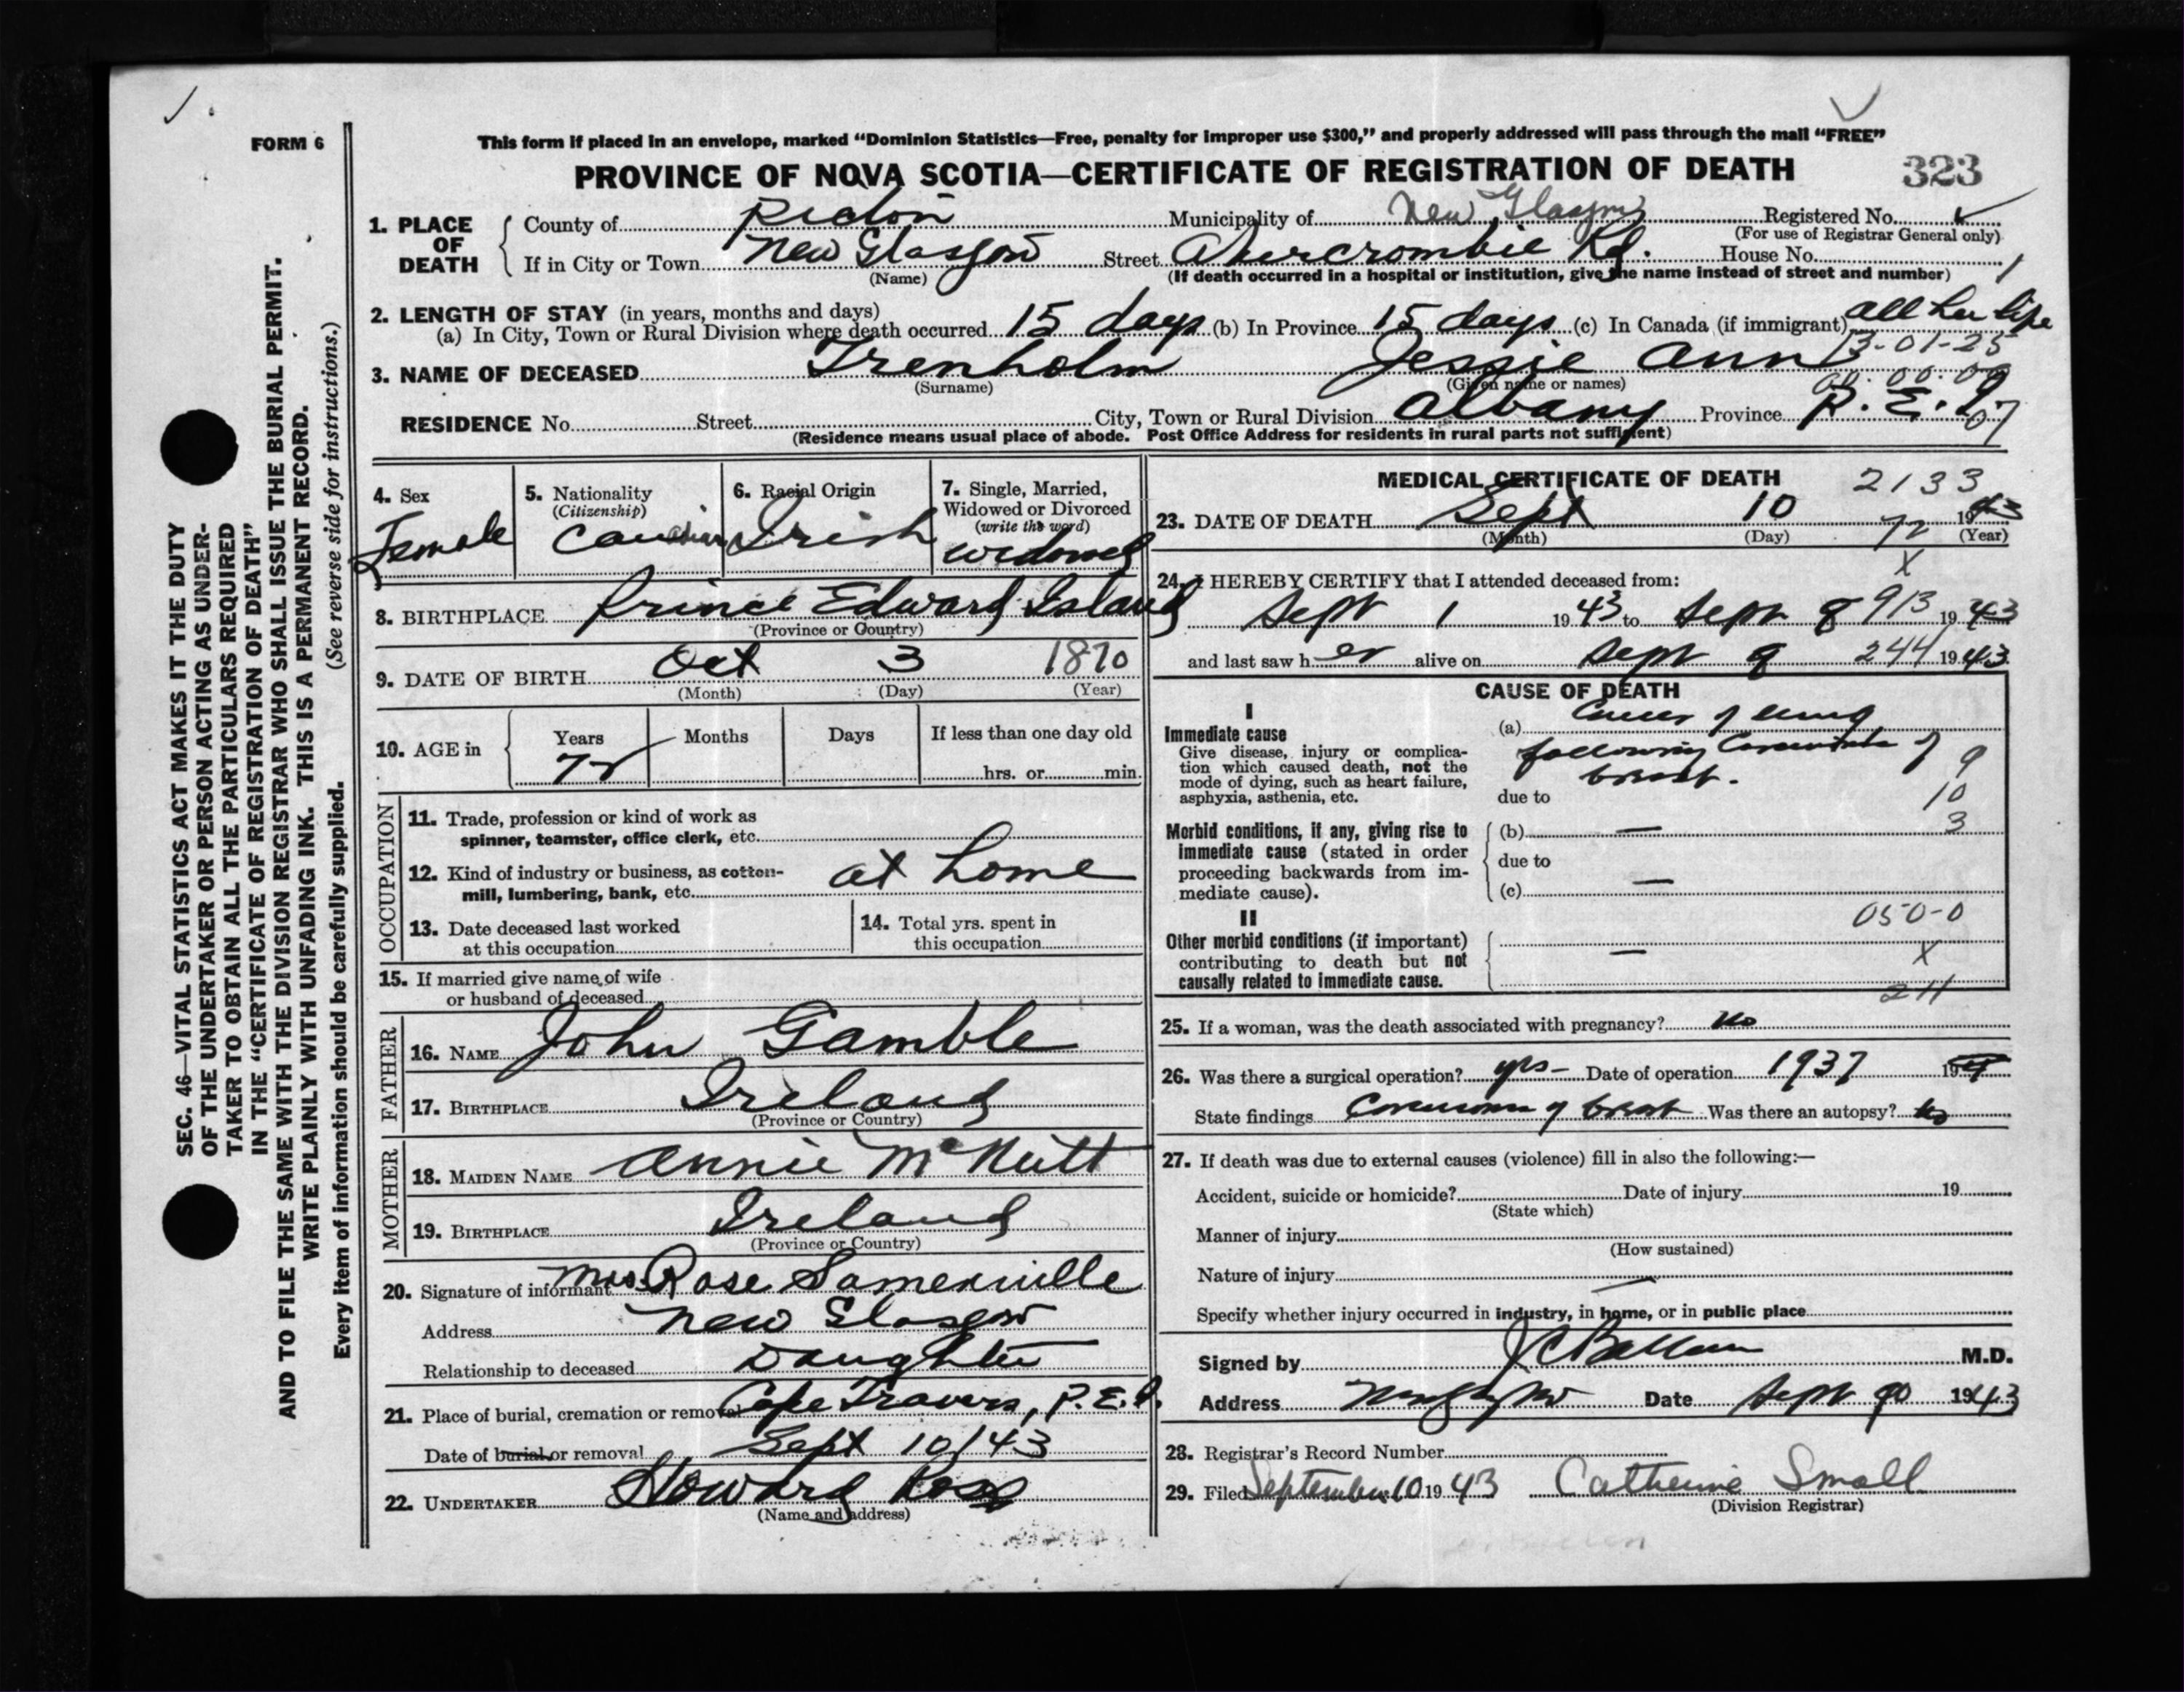 FORM 6
This form if placed in an envelope, marked “Dominion Statistics—Free, penalty for improper use $300,” and properly addressed will pass through the mail “FREE”
PROVINCE OF NOVA SCOTIA—CERTIFICATE OF REGISTRATION OF DEATH
323
1. PLACE OF DEATH
County of Pictou Municipality of New Glasgow Registered No.
(For use of Registrar General only)
If in City or Town New Glasgow Street Abercrombie Rd. House No.
(Name) (If death occurred in a hospital or institution, give the name instead of street and number)
2. LENGTH OF STAY (in years, months and days)
(a) In City, Town or Rural Division where death occurred 15 days (b) In Province 15 days (c) In Canada (if immigrant) all her life
13-01-25
3. NAME OF DECEASED Trenholm Jessie Ann
(Surname) (Given name or names)
00.00.00
RESIDENCE No. Street City, Town or Rural Division Albany Province P.E.I.
07
(Residence means usual place of abode. Post Office Address for residents in rural parts not sufficient)
4. Sex Female
5. Nationality (Citizenship) Canadian
6. Racial Origin Irish
7. Single, Married, Widowed or Divorced (write the word) widowed
8. BIRTHPLACE Prince Edward Island
(Province or Country)
9. DATE OF BIRTH Oct 3 1870
(Month) (Day) (Year)
10. AGE in Years 72 Months Days If less than one day old hrs. or min.
OCCUPATION
11. Trade, profession or kind of work as spinner, teamster, office clerk, etc.
12. Kind of industry or business, as cotton-mill, lumbering, bank, etc. at home
13. Date deceased last worked at this occupation
14. Total yrs. spent in this occupation
15. If married give name of wife or husband of deceased
FATHER
16. NAME John Gamble
17. BIRTHPLACE Ireland
(Province or Country)
MOTHER
18. MAIDEN NAME Annie McNutt
19. BIRTHPLACE Ireland
(Province or Country)
20. Signature of informant Mrs. Rose Somerville
Address New Glasgow
Relationship to deceased Daughter
21. Place of burial, cremation or removal Cape Travers, P.E.I.
Date of burial or removal Sept 10/43
22. UNDERTAKER Howard Ross
(Name and address)
MEDICAL CERTIFICATE OF DEATH
2133
23. DATE OF DEATH Sept 10 1943
(Month) (Day) (Year)
72
X
24. I HEREBY CERTIFY that I attended deceased from:
Sept 1 1943 to Sept 8 1943
913
and last saw her alive on Sept 8 1943
244
CAUSE OF DEATH
I
Immediate cause
Give disease, injury or complica-
tion which caused death, not the
mode of dying, such as heart failure,
asphyxia, asthenia, etc.
(a) Cancer of lung
following Carcinoma of
breast.
due to
9
10
3
Morbid conditions, if any, giving rise to
immediate cause (stated in order
proceeding backwards from im-
mediate cause).
(b) —
due to
(c) —
II
050-0
Other morbid conditions (if important)
contributing to death but not
causally related to immediate cause.
—
X
211
25. If a woman, was the death associated with pregnancy? No
26. Was there a surgical operation? yes – Date of operation 1937 19
State findings Carcinoma of breast Was there an autopsy? No
27. If death was due to external causes (violence) fill in also the following:—
Accident, suicide or homicide? Date of injury 19
(State which)
Manner of injury
(How sustained)
Nature of injury
Specify whether injury occurred in industry, in home, or in public place
Signed by M.D.
Address New Glasgow Date Sept 10 1943
28. Registrar's Record Number
29. Filed September 10 1943 Catherine Small
(Division Registrar)
SEC. 46—VITAL STATISTICS ACT MAKES IT THE DUTY
OF THE UNDERTAKER OR PERSON ACTING AS UNDER-
TAKER TO OBTAIN ALL THE PARTICULARS REQUIRED
IN THE “CERTIFICATE OF REGISTRATION OF DEATH”
AND TO FILE THE SAME WITH THE DIVISION REGISTRAR WHO SHALL ISSUE THE BURIAL PERMIT.
WRITE PLAINLY WITH UNFADING INK. THIS IS A PERMANENT RECORD.
Every item of information should be carefully supplied. (See reverse side for instructions.)